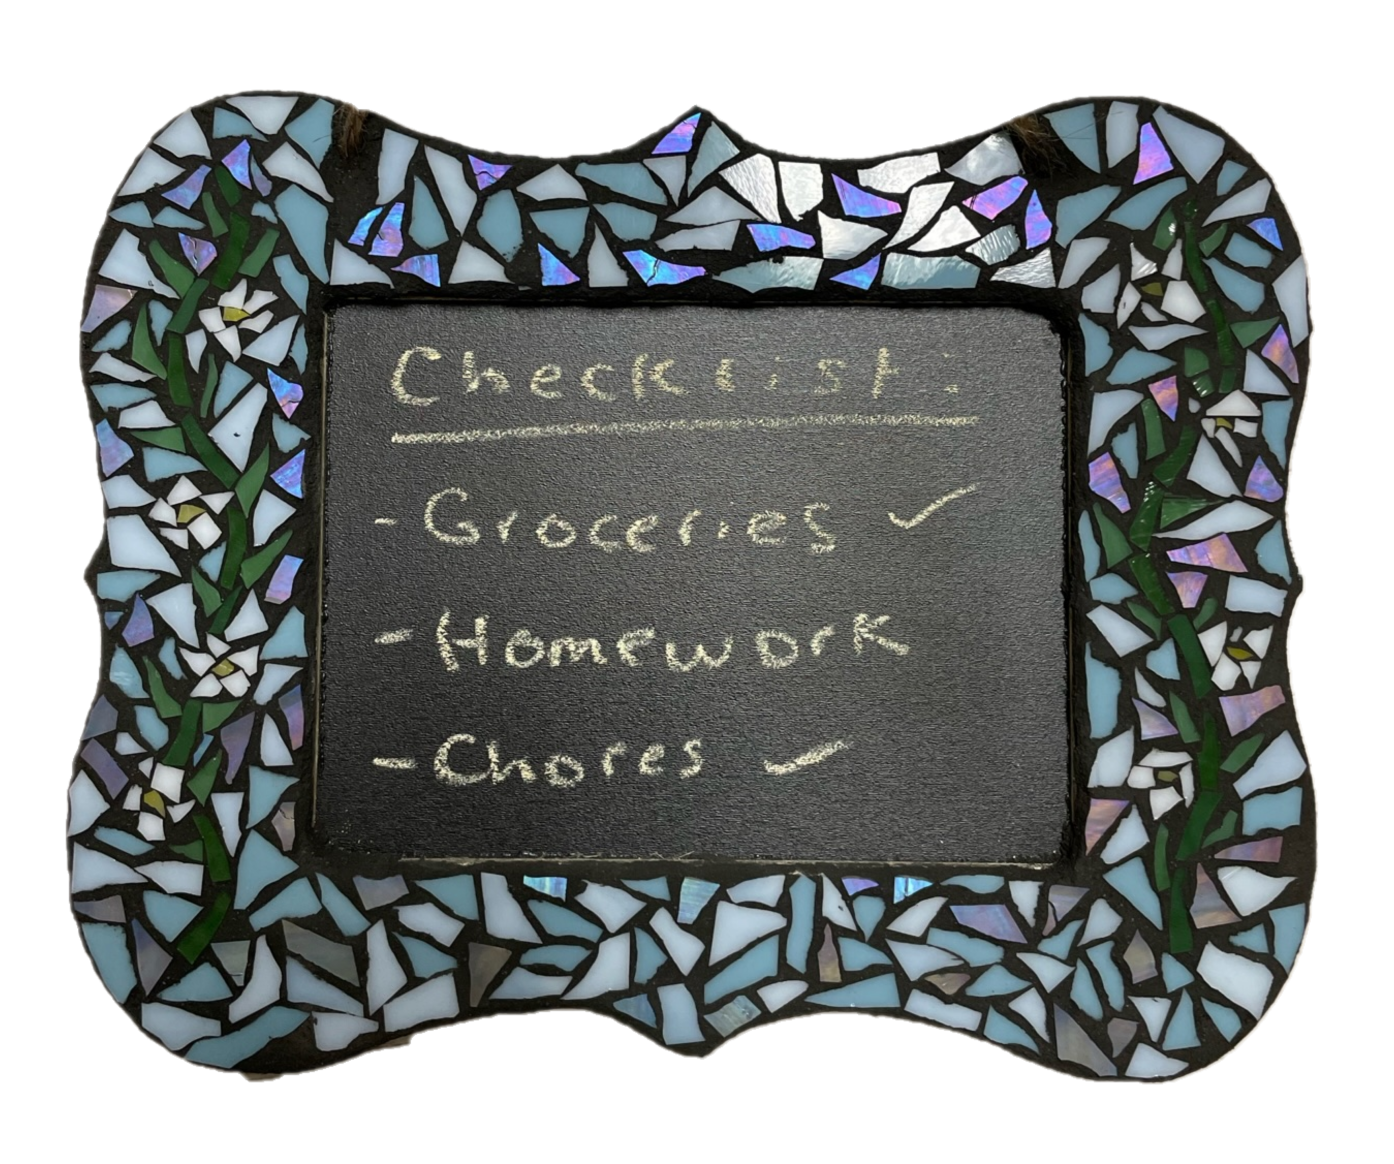 Checklist:
- Groceries ✓
- Homework
- Chores ✓